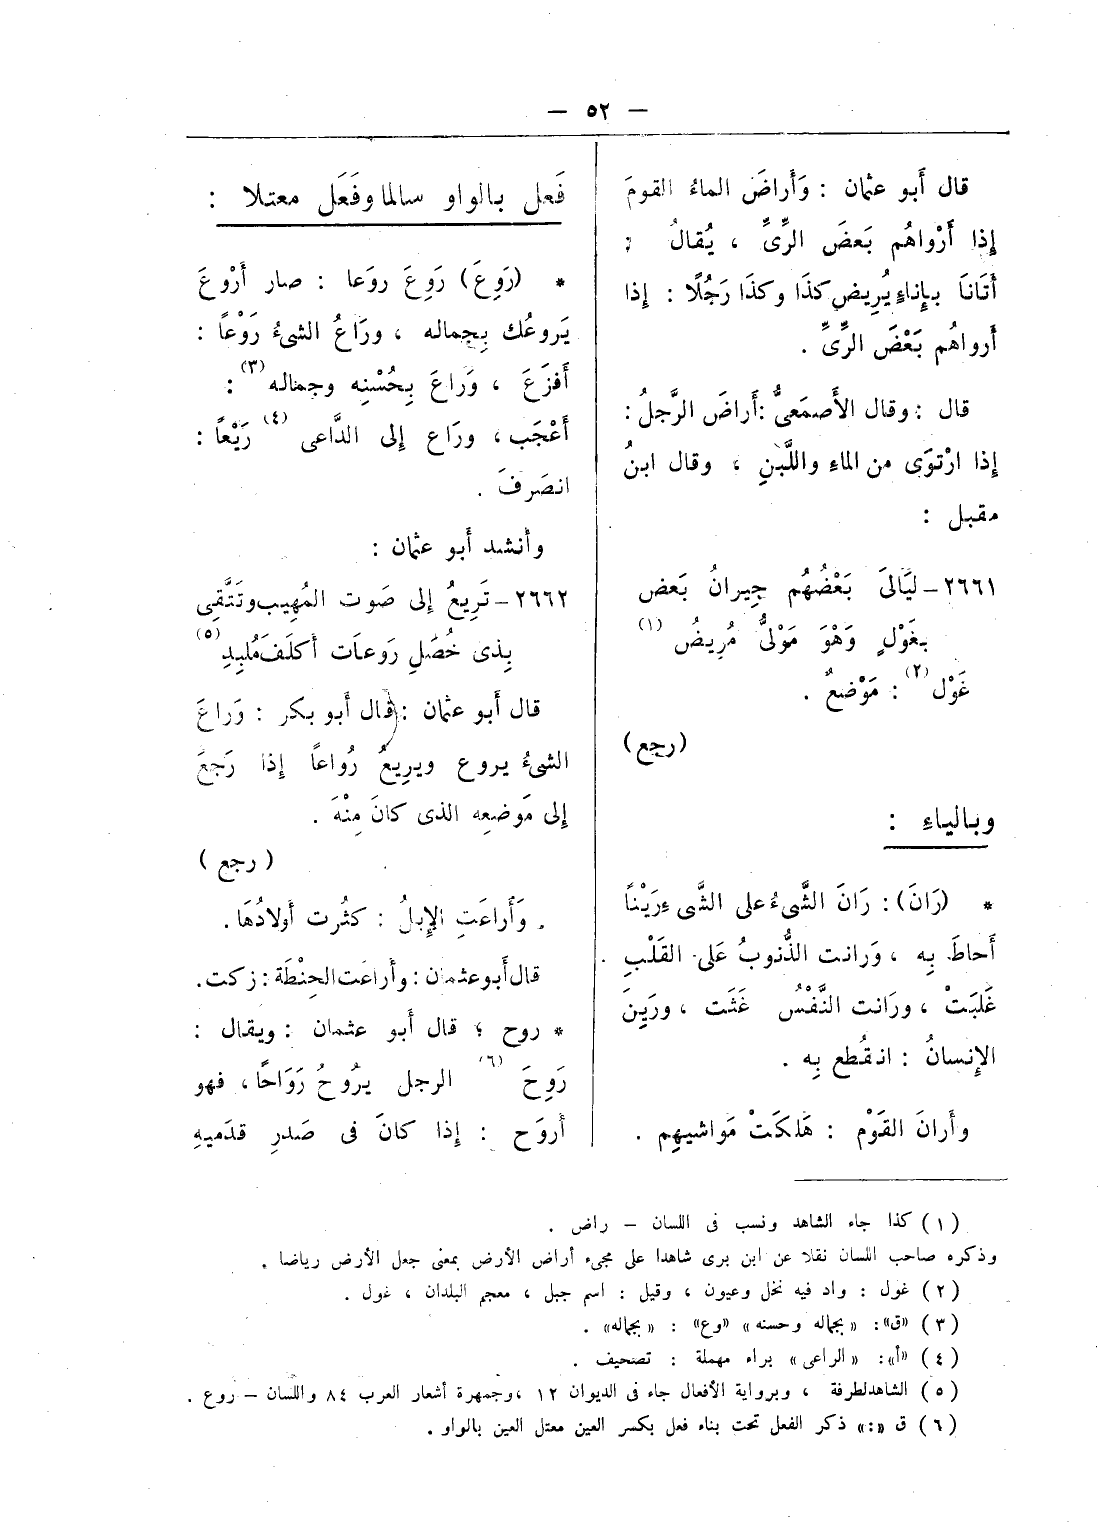 — ٥٢ —
قال أَبو عثمان : وَأَراضَ الماءُ القومَ
إِذا أَرْواهُم بَعضَ الرِّىِّ ، يُقالُ :
أَتَانَا بإِناءٍ يُرِيض كذَا وكذَا رَجُلًا : إِذا
أَرواهُم بَعْضَ الرِّىِّ .
قال : وقال الأَصمَعىُّ : أَراضَ الرَّجلُ :
إِذا ارْتوَى من الماءِ واللَّبَنِ ، وقال ابنُ
مقبل :
٢٦٦١ – ليَالىَ بَعْضُهُم جِيرانُ بَعض
بِغَوْلٍ وَهْوَ مَوْلىٌّ مُرِيضُ (١)
غَوْل (٢) : مَوْضعٌ .
(رجع)
وبالياءِ :
* (رَانَ) : رَانَ الشَّىءُ على الشَّىءِ رَيْنًا
أَحاطَ بِه ، وَرانت الذُّنوبُ عَلى القَلْبِ .
غَلبَتْ ، ورَانت النَّفْسُ غَثَت ، ورَيِنَ
الإِنسانُ : انقُطع بِه .
وأَرانَ القَوْم : هَلكَتْ مَواشيهِم .
فَعل بالواو سالما وفَعَل معتلا :
* (رَوِعَ) رَوِعَ روَعا : صار أَرْوعَ
يَروعُك بِجماله ، ورَاعُ الشىءُ رَوْعاً :
أَفزَعَ ، وَراعَ بِحُسْنِه وجماله (٣) :
أَعْجَب ، ورَاع إِلى الدَّاعى (٤) رَيْعاً :
انصَرفَ .
وأَنشد أَبو عثمان :
٢٦٦٢ – تَرِيعُ إِلى صَوت المُهِيب وتَتَّقِى
بِذى خُصَلٍ رَوعاَت أَكلَفَ مُلبِدِ (٥)
قال أَبو عثمان : قال أَبو بكر : وَراعَ
الشىءُ يروع ويرِيعُ رُواعاً إِذا رَجعَ
إِلى مَوضعِه الذى كانَ مِنْهَ .
( رجع )
. وَأَراعَتِ الإِبلُ : كثُرت أَولادُهَا .
قال أَبو عثمان : وأَراعَت الحِنْطَة : زكت .
* روح ؛ قال أَبو عثمان : ويقال :
رَوِحَ (٦) الرجل يرُوحُ رَوَاحًا ، فهو
أَروَح : إِذا كانَ فى صَدرِ قدَميهِ
(١) كذا جاء الشاهد ونسب فى اللسان – راض .
وذكره صاحب اللسان نقلا عن ابن برى شاهدا على مجىء أراض الأرض بمعنى جعل الأرض رياضا .
(٢) غول : واد فيه نخل وعيون ، وقيل : اسم جبل ، معجم البلدان ، غول .
(٣) «ق» : « بجماله وحسنه » «وع» : « بجماله » .
(٤) «أ» : « الراعى » براء مهملة : تصحيف .
(٥) الشاهد لطرفة ، وبرواية الأفعال جاء فى الديوان ١٢ ، وجمهرة أشعار العرب ٨٤ واللسان – روع .
(٦) ق «:» ذكر الفعل تحت بناء فعل بكسر العين معتل العين بالواو .